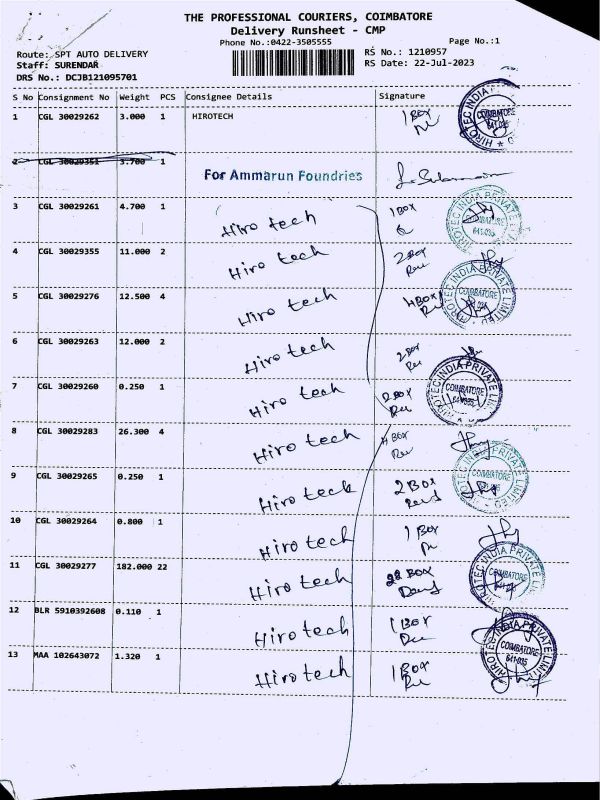 THE PROFESSIONAL COURIERS, COIMBATORE
Delivery Runsheet - CMP
Phone No.:0422-3505555
Page No.:1
Route: SPT AUTO DELIVERY
RS No.: 1210957
Staff: SURENDAR
RS Date: 22-Jul-2023
DRS No.: DCJB121095701
S No Consignment No Weight PCS Consignee Details Signature
1 CGL 30029262 3.000 1 HIROTECH 1 BOX
2 CGL 30029351 3.700 1
For Ammarun Foundries
3 CGL 30029261 4.700 1 Hiro tech 1 BOX
4 CGL 30029355 11.000 2 Hiro tech 2 BOX
5 CGL 30029276 12.500 4 Hiro tech 4 BOX
6 CGL 30029263 12.000 2 Hiro tech 2 BOX
7 CGL 30029260 0.250 1 Hiro tech BOX
8 CGL 30029283 26.300 4 Hiro tech 4 BOX
9 CGL 30029265 0.250 1 Hiro tech 2 BOX
10 CGL 30029264 0.800 1 Hiro tech 1 BOX
11 CGL 30029277 182.000 22 Hiro tech 22 BOX
12 BLR 5910392608 0.110 1 Hiro tech 1 BOX
13 MAA 102643072 1.320 1 Hiro tech 1 BOX
HIROTEC INDIA PRIVATE LIMITED
COIMBATORE
641-035